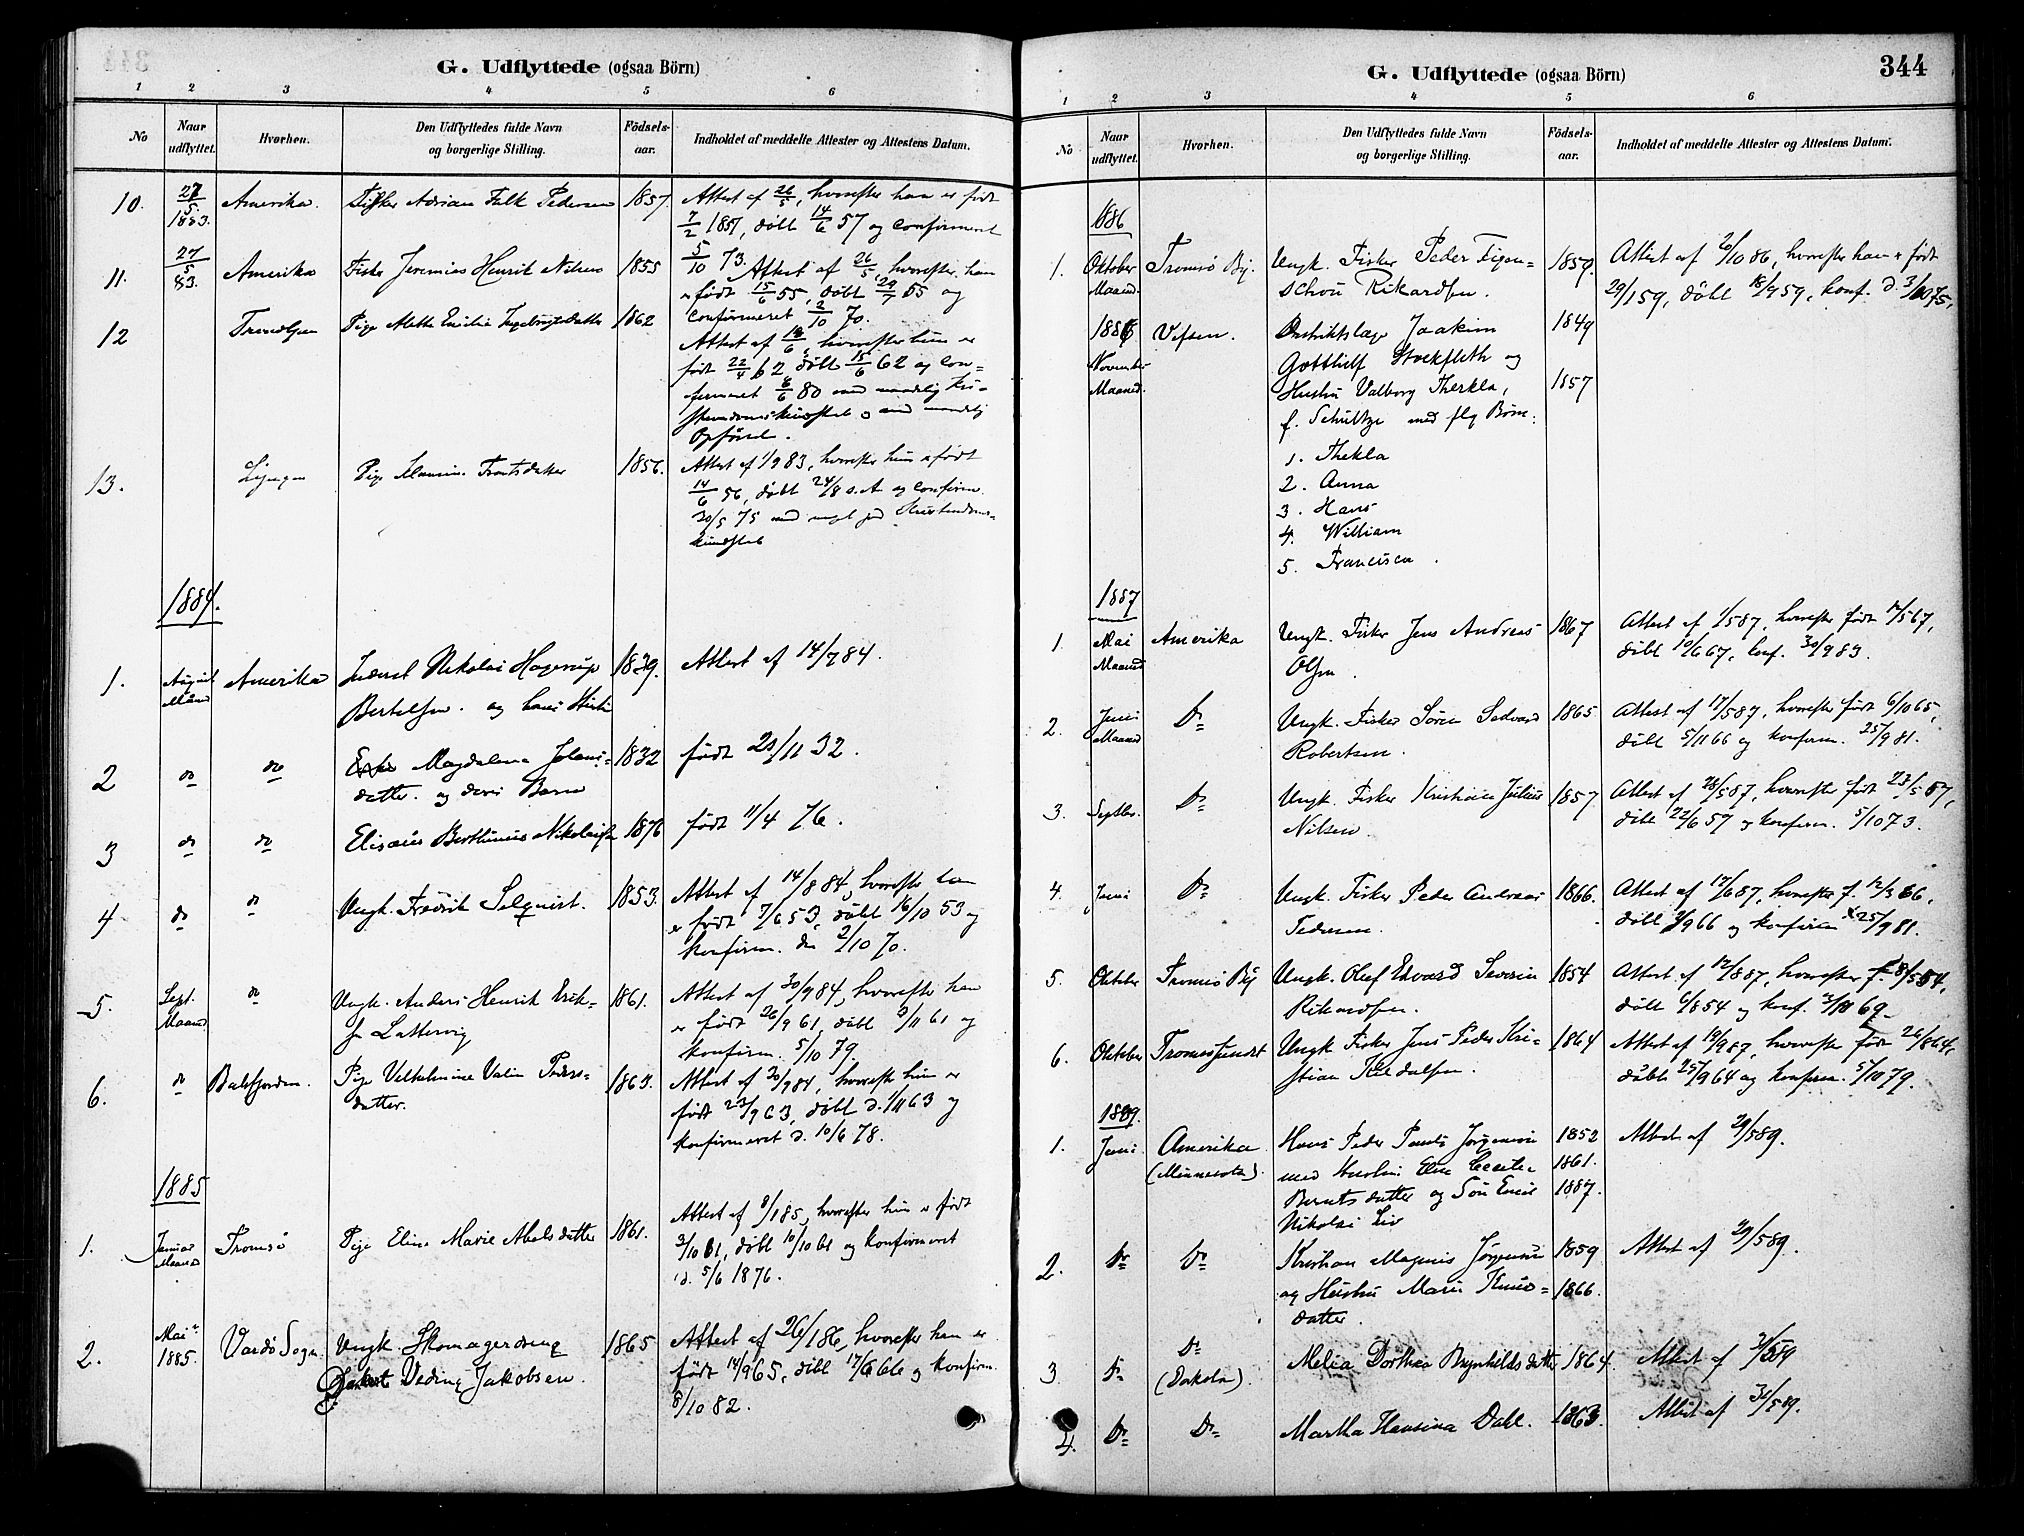 G. Udflyttede (ogsaa Börn)
1 2 3 4 5 6
No
Naar udflyttet.
Hvorhen.
Den Udflyttedes fulde Navn og borgerlige Stilling.
Födsels-aar.
Indholdet af meddelte Attester og Attestens Datum.
10. 27/5 1883. Amerika. Fisker Adrian Falk Pedersen 1857. Attest af 26/5, hvorefter han er født
7/2 1857, døbt 14/6 57 og confirmeret
5/10 73.
11. 27/5 83. Amerika Fisker Jeremias Henrik Nilsen 1855 Attest af 26/5, hvorefter han
er født 15/6 55, døbt 29/7 55 og
confirmeret 2/10 70.
12 Pige Mette Emilie Ingebrigtsdatter 1862
Attest af 18/6, hvorefter hun er
født 22/4 62, døbt 15/6 62 og con-
firmeret 6/6 80 med maadelig Kri-
stendomskundskab og med maadelig
Opførsel.
13. Lyngen Pige 1856. Attest af 1/9 83, hvorefter hun er født
14/6 56, døbt 24/8 s.A. og confirm.
30/5 75 med meget god Kristendoms-
kundskab
1884.
1. August Maaned Amerika Inderst Nikolai Hagerup 1839. Attest af 14/7 84.
Bertelsen. og hans Hustru
2 do do Magdalena Johans- 1832 født 23/11 32.
datter. og deres Barn
3 do do Elisæus Berthinius Nikolaisen 1876 født 11/4 76.
4 do do Ungk. Fredrik Selquist. 1853. Attest af 14/8 84, hvorefter han
er født 7/6 53, døbt 16/10 53 og
konfirm. den 2/10 70.
5. Sept. Maaned do Ungk. Anders Henrik Erik- 1861. Attest af 30/9 84, hvorefter han
sen Lattervig er født 26/9 61, døbt 3/11 61 og
konfirm. 5/10 79.
6. do Balsfjorden. Pige Vilhelmine Valin Peders- 1863. Attest af 30/9 84, hvorefter hun er
datter. født 23/9 63, døbt d. 1/11 63 og
konfirmeret d. 10/6 78.
1885
1. Januar Maaned Tromsö Pige Eline Marie Abelsdatter 1861. Attest af 8/1 85, hvorefter hun er født
3/10 61, døbt 10/10 61 og konfirmeret
d. 5/6 1876.
2. Mai 1885. Vardö Sogn Ungk. Skomagerdreng 1865 Attest af 26/1 86, hvorefter han er
Veding Jakobsen. født 14/9 65, døbt 17/6 66 og konfirm.
8/10 82.
G. Udflyttede (ogsaa Börn)
344
1 2 3 4 5 6
No
Naar udflyttet.
Hvorhen.
Den Udflyttedes fulde Navn og borgerlige Stilling.
Födsels-aar.
Indholdet af meddelte Attester og Attestens Datum.
1886
1. Oktober Maaned. Tromsö By. Ungk. Fisker Peder Figen- 1859. Attest af 6/10 86, hvorefter han er født
schou Rikardsen. 29/1 59, døbt 18/9 59, konf. d. 3/10 75.
1886 November Maaned. Vefsen. Distriktslæge Joakim 1849
Gotthilf Stockfleth og
Hustru Valborg Therkla, 1857
f. Schultze med flg Børn:
1. Thekla
2. Anna
3. Hans
4. William
5. Francisca.
1887
1. Mai Maaned Amerika Ungk. Fisker Jens Andreas 1867 Attest af 1/5 87, hvorefter født 17/5 67,
Olsen. døbt 10/6 67, konf. 30/9 83.
2. Juni Maaned Do Ungk. Fisker Søren Sedvard 1865. Attest af 17/5 87, hvorefter født 6/10 65,
Robertsen. døbt 5/11 66 og konfirm. 25/9 81.
3. Septbr. Do Ungk. Fisker Kristian Julius 1857 Attest af 28/5 87, hvorefter født 23/5 57,
Nilsen. døbt 22/6 57 og konfirm. 5/10 73.
4. Juni Do Ungk. Fisker Peder Andreas 1866. Attest af 17/6 87, hvorefter f. 12/3 66,
Pedersen. døbt 2/9 66 og konfirm 25/9 81.
5. Oktober Tromsö By Ungk. Olef Edvard Severin 1854 Attest af 12/8 87, hvorefter f. 8/5 54,
Rikardsen. døbt 6/8 54 og konf. 3/10 69.
6. Oktober Tromsösundet Ungk. Fisker Jens Peder Kri- 1864 Attest af 19/9 87, hvorefter født 26/8 64,
stian Kildalsen. døbt 25/9 64 og konfirm. 5/10 79.
1889.
1. Juni Amerika Hans Peder Jörgensen 1852 Attest af 29/5 89.
(Minnesota). med Hustru Eline Cecilie 1861.
Berntsdatter og Søn Emil 1887.
Nikolai Liv
2. Do Do Kristian Magnus Jørgensen 1859 Attest af 29/5 89.
og Hustru Marie Knuds- 1866.
datter.
3. Do Do (Dakota). Melia Dorthea Brynhildsdatter 1864. Attest af 31/5 89
4. Do Do Martha Hansina Dahl. 1863. Attest af 31/5 89.